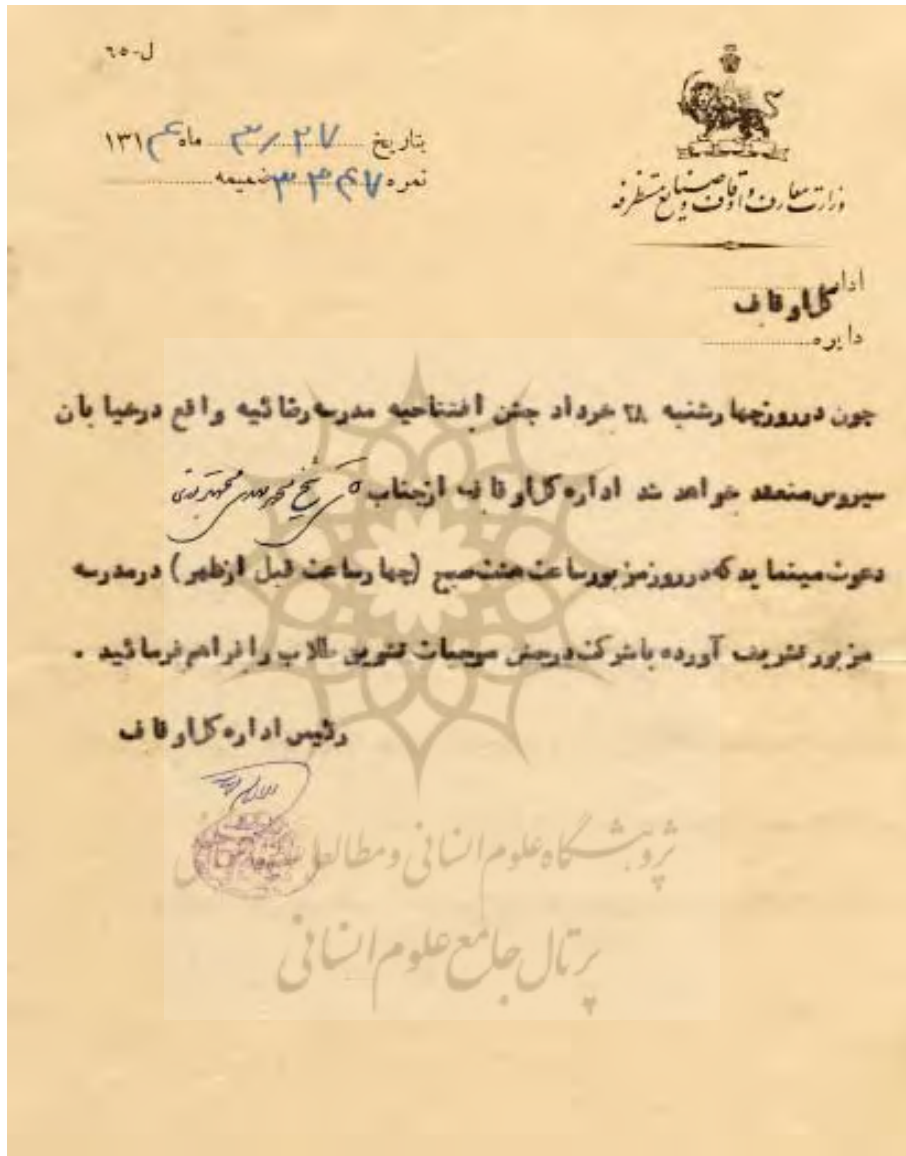 ل-٦٥
بتاریخ ۳/۲۷ ماه ۱۳۱۴
نمره ۳۳۴۷ ضمیمه
وزارت معارف و اوقاف و صنایع مستظرفه
اداره کل اوقاف
دایره
چون در روز چهارشنبه ۲۸ خرداد جشن افتتاحیه مدرسه رضائیه واقع در خیابان
سیروس منعقد خواهد شد اداره کل اوقاف از جناب آقای شیخ محمد مهدی
دعوت مینماید که در روز مزبور ساعت هشت صبح (چهار ساعت قبل از ظهر) در مدرسه
مزبور تشریف آورده با شرکت در جشن موجبات تشویق طلاب را فراهم فرمائید .
رئیس اداره کل اوقاف
پژوهشگاه علوم انسانی و مطالعات فرهنگی
پرتال جامع علوم انسانی